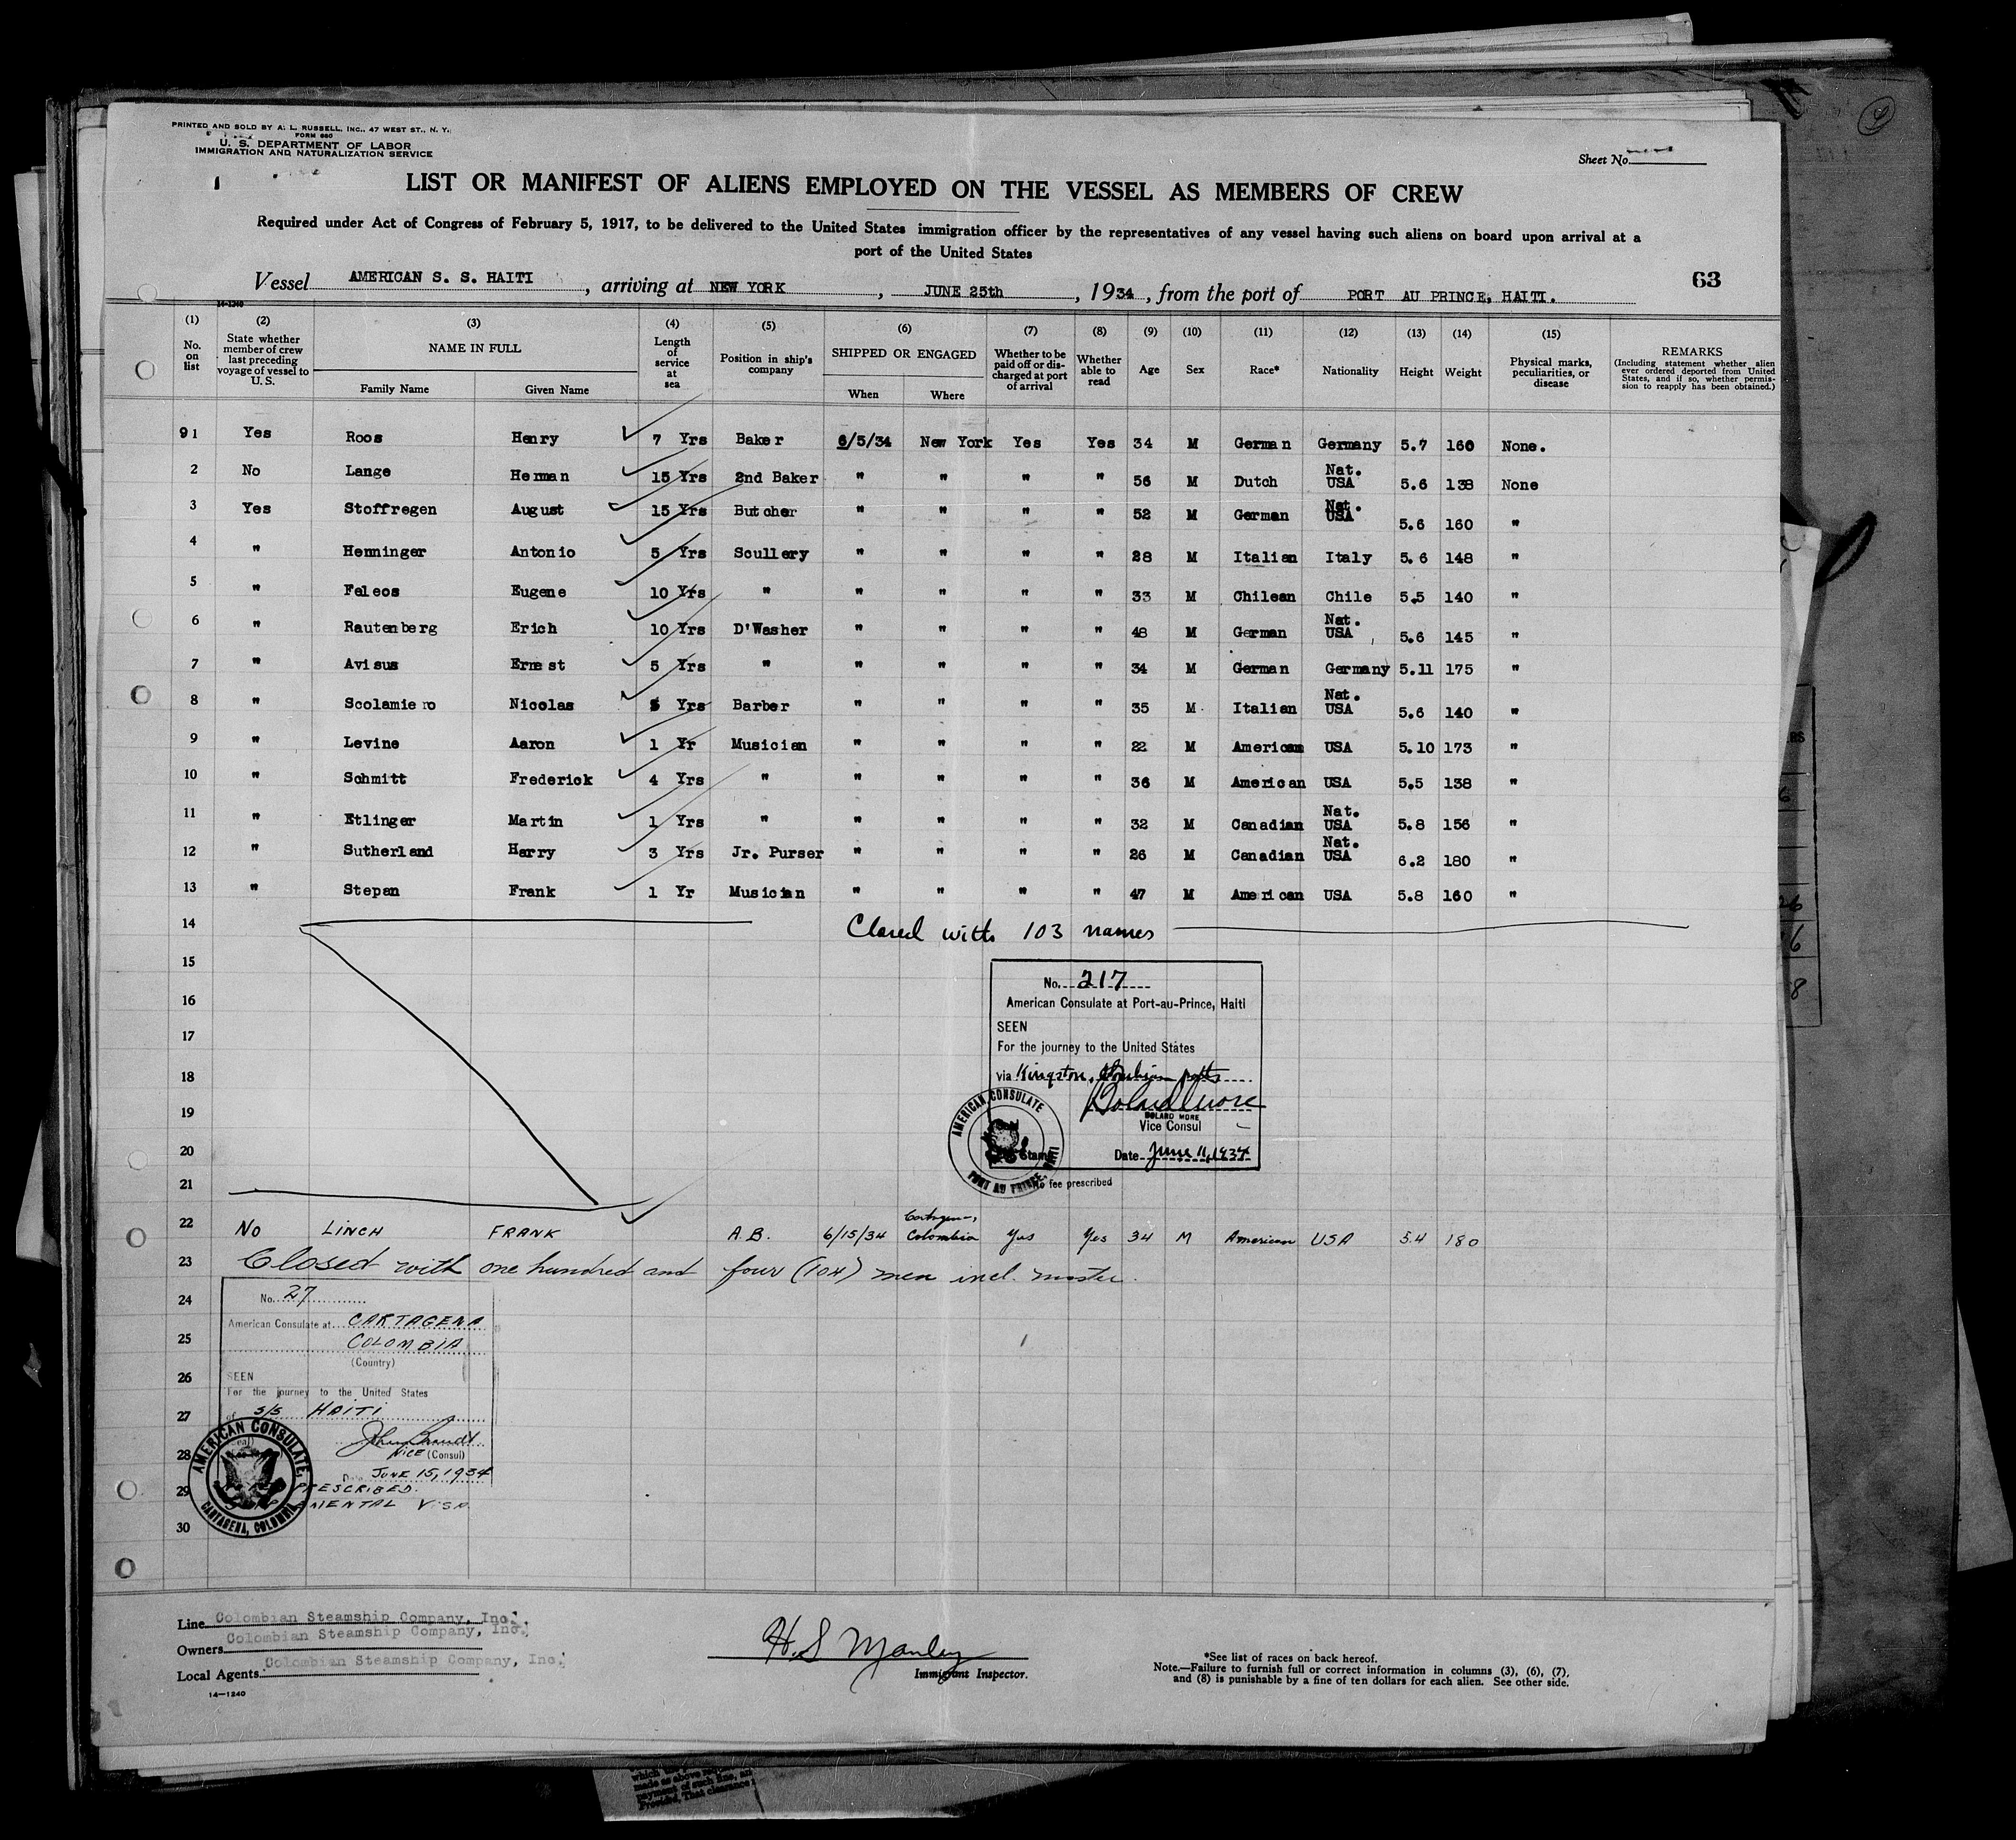 PRINTED AND SOLD BY A. L. RUSSELL, INC., 47 WEST ST., N. Y.
FORM 680
U. S. DEPARTMENT OF LABOR
IMMIGRATION AND NATURALIZATION SERVICE
Sheet No.
LIST OR MANIFEST OF ALIENS EMPLOYED ON THE VESSEL AS MEMBERS OF CREW
Required under Act of Congress of February 5, 1917, to be delivered to the United States immigration officer by the representatives of any vessel having such aliens on board upon arrival at a
port of the United States
Vessel AMERICAN S. S. HAITI, arriving at NEW YORK, JUNE 25th, 1934, from the port of PORT AU PRINCE, HAITI.
63
14-1240
(1) No. on list
(2) State whether member of crew last preceding voyage of vessel to U.S.
(3) NAME IN FULL
Family Name Given Name
(4) Length of service at sea
(5) Position in ship's company
(6) SHIPPED OR ENGAGED
When Where
(7) Whether to be paid off or discharged at port of arrival
(8) Whether able to read
(9) Age
(10) Sex
(11) Race*
(12) Nationality
(13) Height
(14) Weight
(15) Physical marks, peculiarities, or disease
REMARKS
(Including statement whether alien ever ordered deported from United States, and if so, whether permission to reapply has been obtained.)
91 Yes Roos Henry 7 Yrs Baker 6/5/34 New York Yes Yes 34 M German Germany 5.7 160 None.
2 No Lange Herman 15 Yrs 2nd Baker " " " " 56 M Dutch Nat. USA 5.6 138 None
3 Yes Stoffregen August 15 Yrs Butcher " " " " 52 M German Nat. USA 5.6 160 "
4 " Henninger Antonio 5 Yrs Scullery " " " " 28 M Italian Italy 5.6 148 "
5 " Feleos Eugene 10 Yrs " " " " " 33 M Chilean Chile 5.5 140 "
6 " Rautenberg Erich 10 Yrs D'Washer " " " " 48 M German Nat. USA 5.6 145 "
7 " Avisus Ernest 5 Yrs " " " " " 34 M German Germany 5.11 175 "
8 " Scolamiero Nicolas 5 Yrs Barber " " " " 35 M Italian Nat. USA 5.6 140 "
9 " Levine Aaron 1 Yr Musician " " " " 22 M American USA 5.10 173 "
10 " Schmitt Frederick 4 Yrs " " " " " 36 M American USA 5.5 138 "
11 " Etlinger Martin 1 Yrs " " " " " 32 M Canadian Nat. USA 5.8 156 "
12 " Sutherland Harry 3 Yrs Jr. Purser " " " " 26 M Canadian Nat. USA 6.2 180 "
13 " Stepan Frank 1 Yr Musician " " " " 47 M American USA 5.8 160 "
14 Closed with 103 names
15
No. 217
16 American Consulate at Port-au-Prince, Haiti
SEEN
17 For the journey to the United States
18 via Kingston, Colombian ports
Bolard More
19 BOLARD MORE
Vice Consul
20 Date June 11, 1934
AMERICAN CONSULATE PORT AU PRINCE, HAITI
21 No fee prescribed
22 No LINCH FRANK A.B. 6/15/34 Cartagena, Colombia Yes Yes 34 M American USA 5.4 180
23 Closed with one hundred and four (104) men incl. master.
24 No. 27
American Consulate at CARTAGENA
25 COLOMBIA
(Country)
26 SEEN
For the journey to the United States
27 of S/S HAITI
John Brandt
28 VICE (Consul)
Date JUNE 15, 1934
29 PRESCRIBED.
VISA
AMERICAN CONSULATE, CARTAGENA, COLOMBIA
30
Line Colombian Steamship Company, Inc.
Owners Colombian Steamship Company, Inc.
Local Agents Colombian Steamship Company, Inc.
14-1240
H. S Manley
Immigrant Inspector.
*See list of races on back hereof.
Note.—Failure to furnish full or correct information in columns (3), (6), (7), and (8) is punishable by a fine of ten dollars for each alien. See other side.